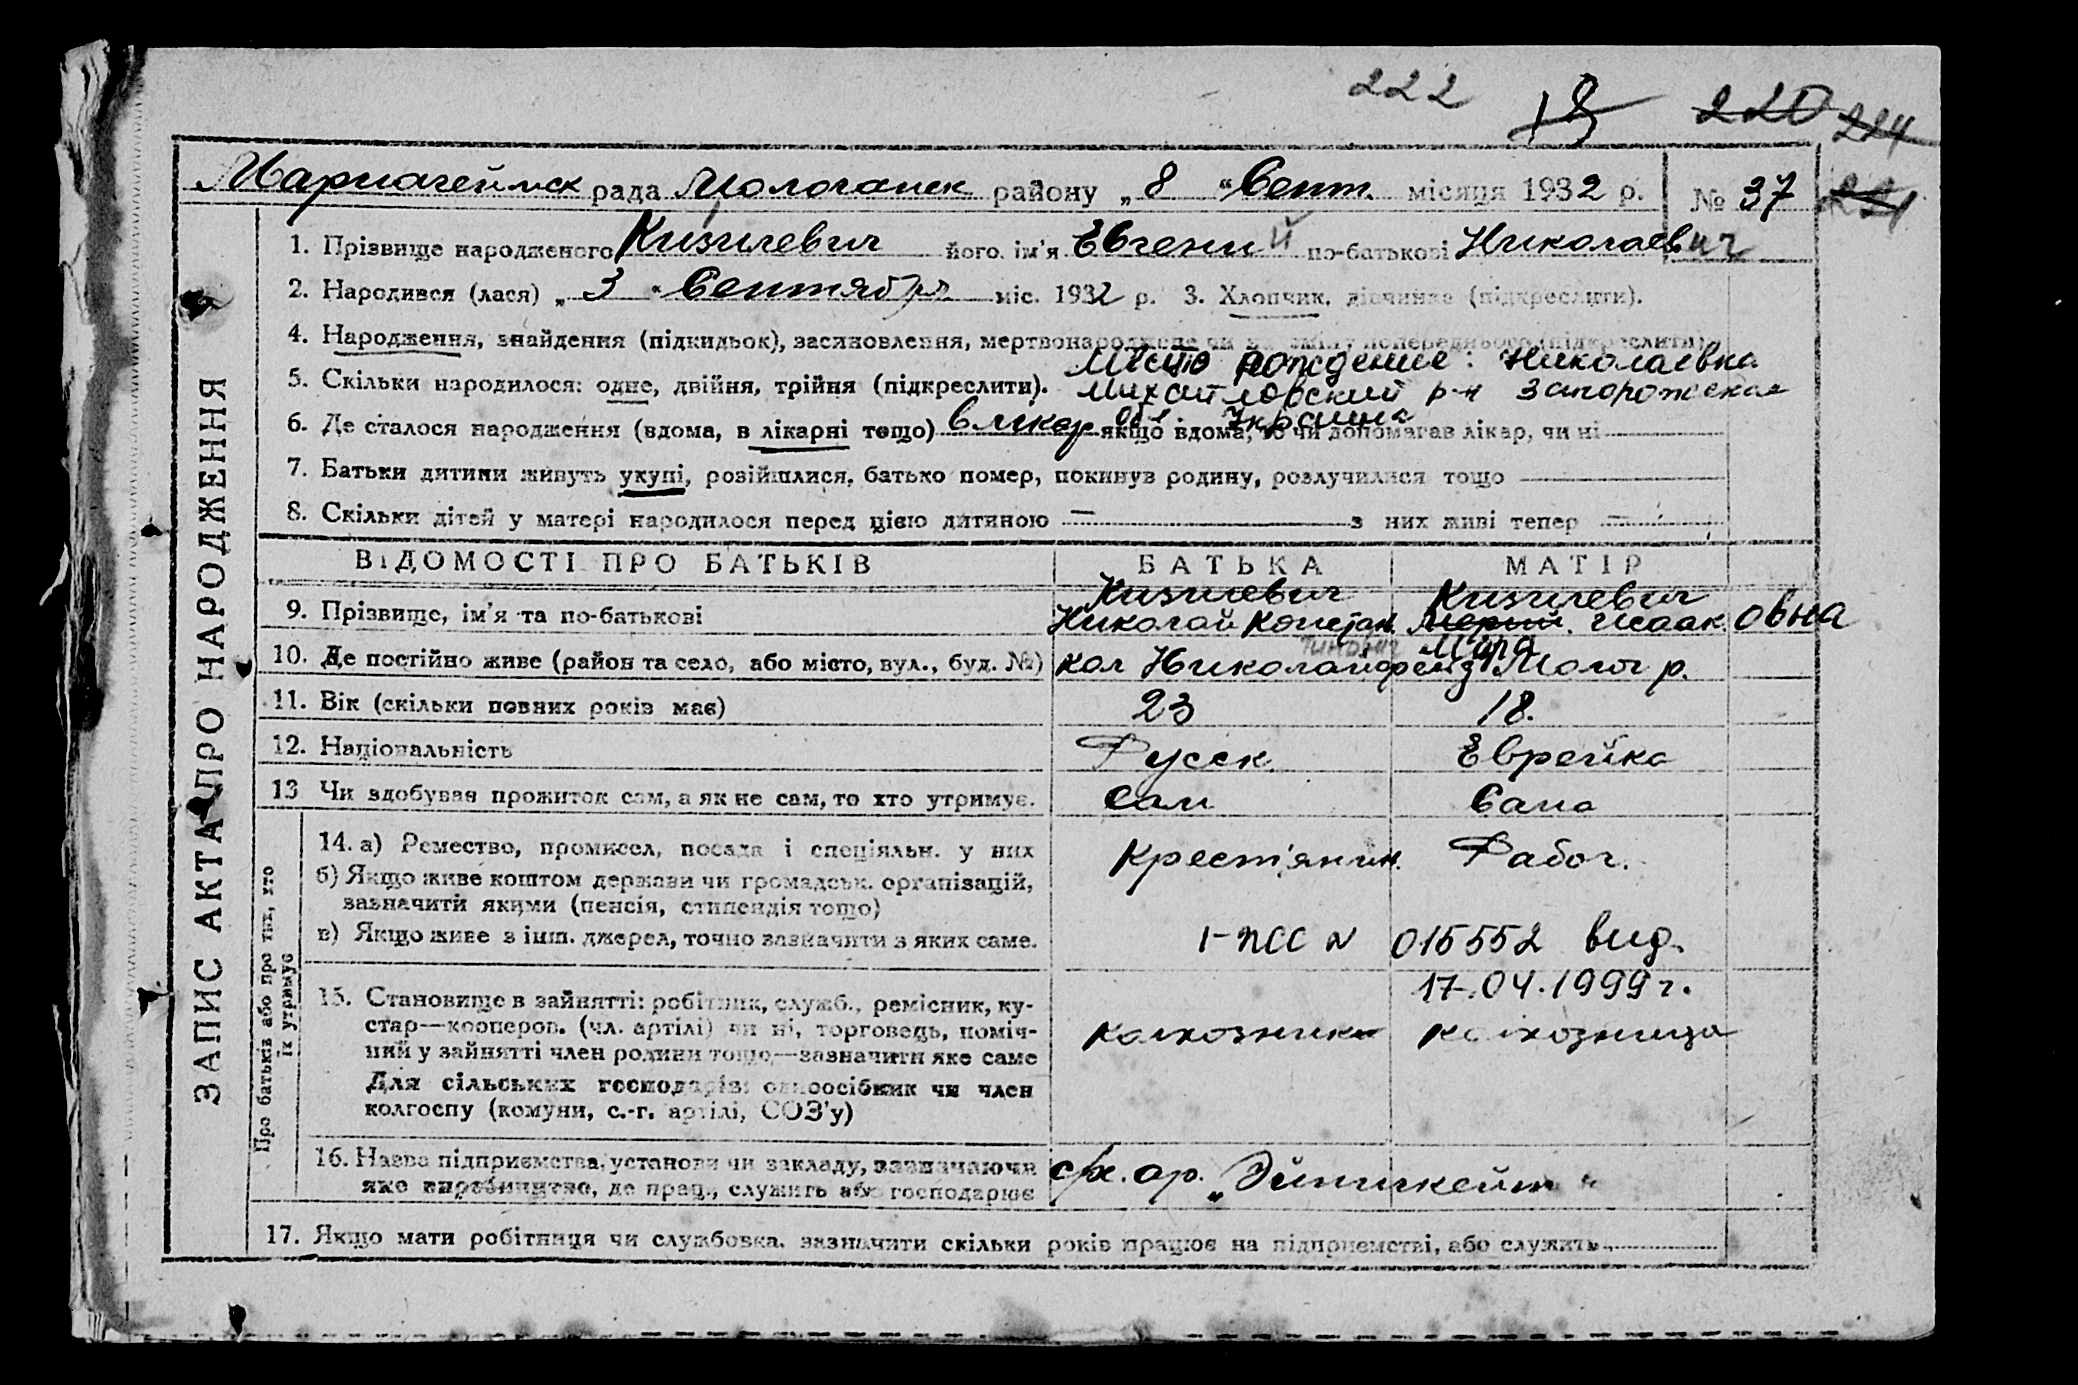 222 18 220 214
Мариагеймск рада Мологанск району „8“ Сент. місяця 1932 р. № 37 221
1. Прізвище народженого Кизилевич його ім'я Евгений по-батькові Николаевич
2. Народився (лася) „3“ Сентября міс. 1932 р. 3. Хлопчик, дівчинка (підкреслити).
4. Народження, знайдення (підкидьок), засиновлення, мертвонароджене чи на зміну попереднього (підкреслити)
Место рождение: Николаевка
5. Скільки народилося: одне, двійня, трійня (підкреслити). Михайловский р-н Запорожская
обл. Украина
6. Де сталося народження (вдома, в лікарні тощо) в лікар якщо вдома, то чи допомагав лікар, чи ні
7. Батьки дитини живуть укупі, розійшлися, батько помер, покинув родину, розлучилися тощо —
8. Скільки дітей у матері народилося перед цією дитиною — з них живі тепер —
ВІДОМОСТІ ПРО БАТЬКІВ БАТЬКА МАТІР
Кизилевич Кизилевич
9. Прізвище, ім'я та по-батькові Николай Констан. Мерий. Исаак. овна
тинович Мара
10. Де постійно живе (район та село, або місто, вул., буд. №) кол Николайфельд Молоч р.
11. Вік (скільки повних років має) 23 18.
12. Національність Русск. Еврейка
13 Чи здобував прожиток сам, а як не сам, то хто утримує. Сам Сама
14. а) Ремество, промисел, посада і спеціяльн. у них Крест'янин. Рабоч.
б) Якщо живе коштом держави чи громадськ. організацій,
зазначити якими (пенсія, стипендія тощо)
в) Якщо живе з інш. джерел, точно зазначити з яких саме. І-ЖС N 015552 выд.
17.04.1999 г.
15. Становище в зайнятті: робітник, служб., ремісник, ку-
стар—кооперов. (чл. артілі) чи ні, торговець, поміч- колхозника колхозница
ний у зайнятті член родини тощо—зазначити яке саме
Для сільських господарів: одноосібник чи член
колгоспу (комуни, с.-г. артілі, СОЗ'у)
16. Назва підприємства, установи чи закладу, зазначаючи с/х. ар. „Эйнигкейт“
яке виробництво, де прац., служить або господарює
17. Якщо мати робітниця чи службовка, зазначити скільки років працює на підприємстві, або служить
ЗАПИС АКТА ПРО НАРОДЖЕННЯ
Про батьків або про тих, хто
їх утримує